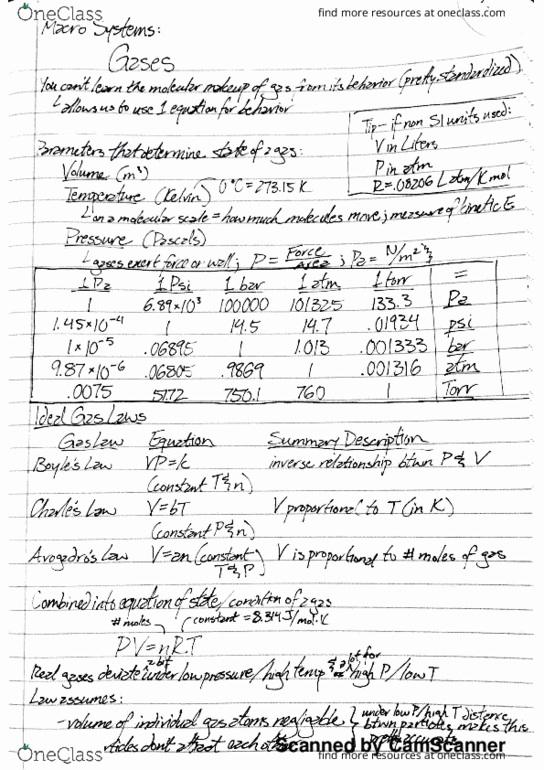 OneClass
find more resources at oneclass.com
Macro Systems:
Gases
You can't learn the molecular makeup of gas from its behavior (pretty standardized)
↳ allows us to use 1 equation for behavior
Tip - if non SI units used:
V in Liters
P in atm
R = .08206 L atm/K mol
Parameters that determine state of a gas:
Volume (m³)
Temperature (Kelvin) 0°C = 273.15 K
↳ on a molecular scale = how much molecules move; measure of kinetic E
Pressure (Pascals)
↳ gases exert force on wall; P = Force/Area ; Pa = N/m²
1 Pa 1 Psi 1 bar 1 atm 1 torr =
1 6.89×10³ 100000 101325 133.3 Pa
1.45×10⁻⁴ 1 14.5 14.7 .01934 psi
1×10⁻⁵ .06895 1 1.013 .001333 bar
9.87×10⁻⁶ .06805 .9869 1 .001316 atm
.0075 51.72 750.1 760 1 Torr
Ideal Gas Laws
Gas Law Equation Summary Description
Boyle's Law VP=k inverse relationship btwn P & V
(constant T & n)
Charle's Law V=bT V proportional to T (in K)
(constant P & n)
Avogadro's Law V=an (constant V is proportional to # moles of gas
T & P)
Combined into equation of state/condition of a gas
# moles constant = 8.314 J/mol·K
PV=nRT
Real gases deviate a bit under low pressure/high temp & a lot for high P/low T
Law assumes:
- volume of individual gas atoms negligible under low P/high T distance
btwn particles makes this
don't affect each other
Scanned by CamScanner
OneClass
find more resources at oneclass.com